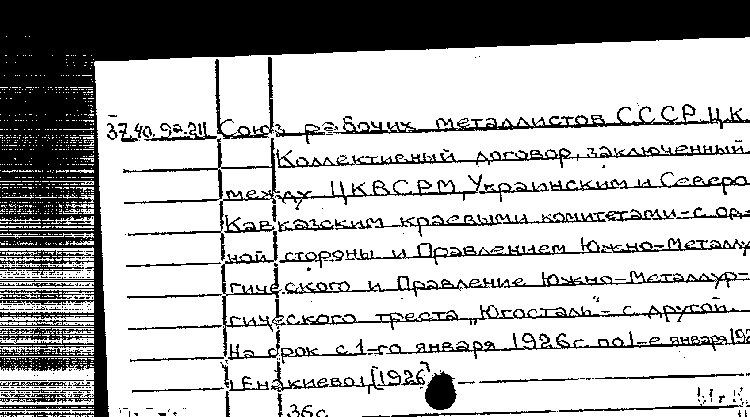 37.40.92.211 Союз рабочих металлистов СССР. Ц.К.
Коллективный договор, заключенный
между ЦКВСРМ, Украинским и Северо
Кавказским краевыми комитетами-с од
ной стороны и Правлением Южно-Металлу
гического и Правление Южно-Металлур-
гического треста „Югосталь"- с другой.
На срок с 1-го января 1926 г. по 1-е января 192
(Енакиево), [1926]
36с.